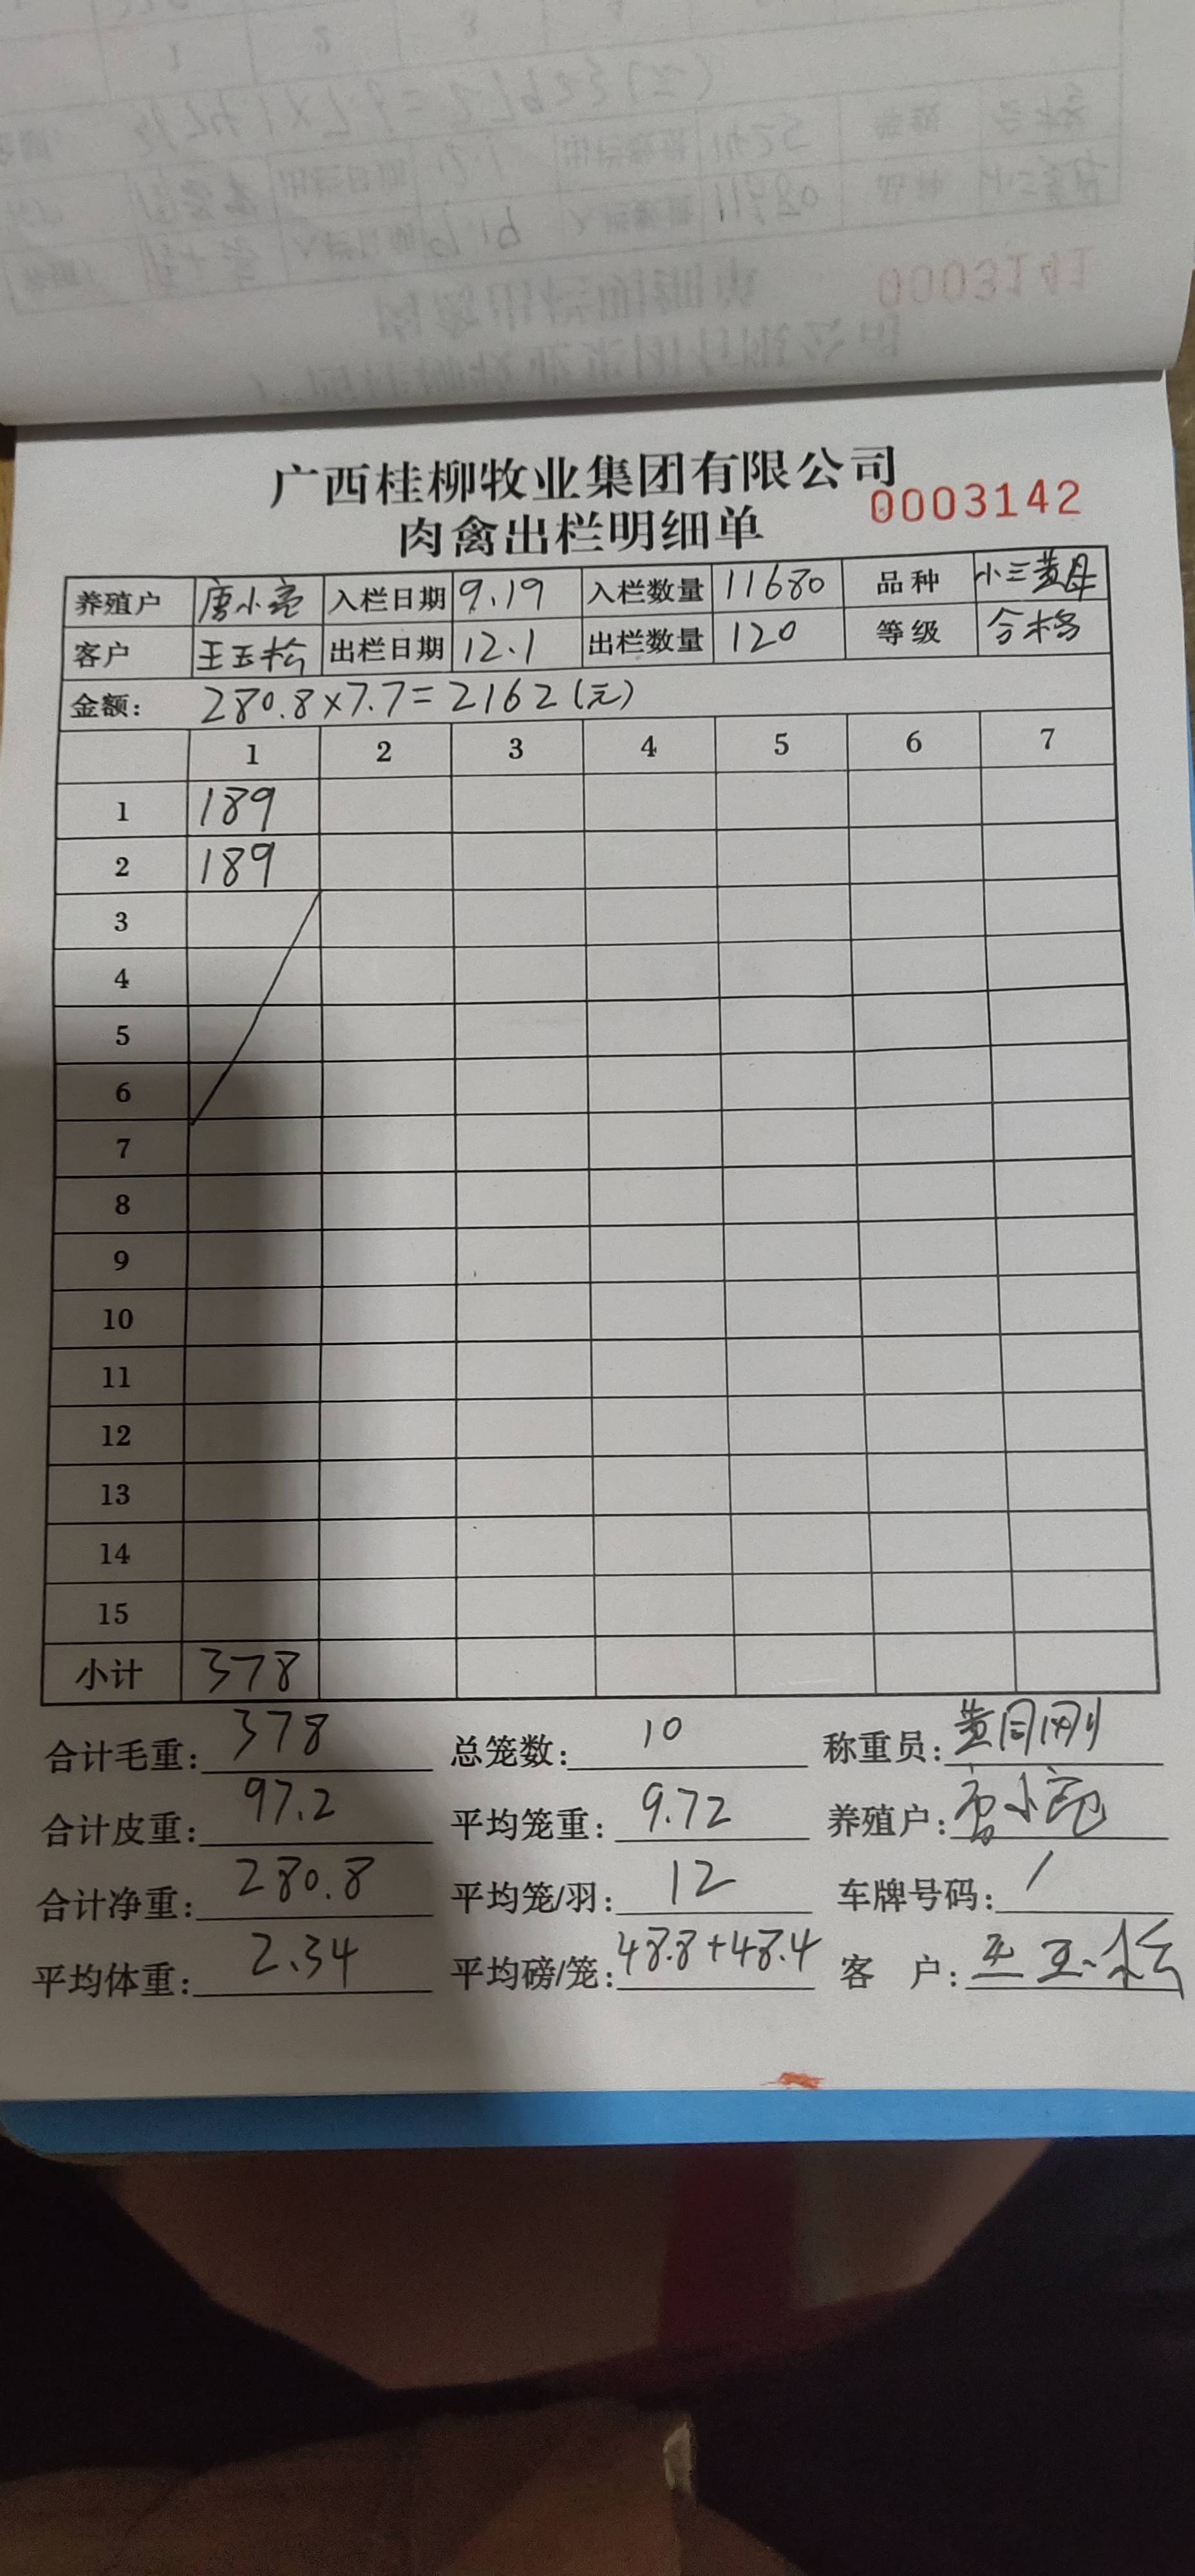 0003141
广西桂柳牧业集团有限公司
0003142
肉禽出栏明细单
养殖户 唐小亮 入栏日期 9.19 入栏数量 11680 品种 小三黄母
客户 王玉松 出栏日期 12.1 出栏数量 120 等级 合格
金额: 280.8×7.7=2162(元)
1 2 3 4 5 6 7
1 189
2 189
3
4
5
6
7
8
9
10
11
12
13
14
15
小计 378
合计毛重: 378 总笼数: 10 称重员: 黄同刚
合计皮重: 97.2 平均笼重: 9.72 养殖户: 唐小亮
合计净重: 280.8 平均笼/羽: 12 车牌号码: /
平均体重: 2.34 平均磅/笼: 48.8+48.4 客 户: 王玉松